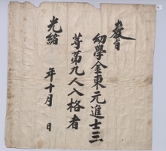 敎旨
幼學金東元進士三
等第九人入格者
光緖 年十月 日